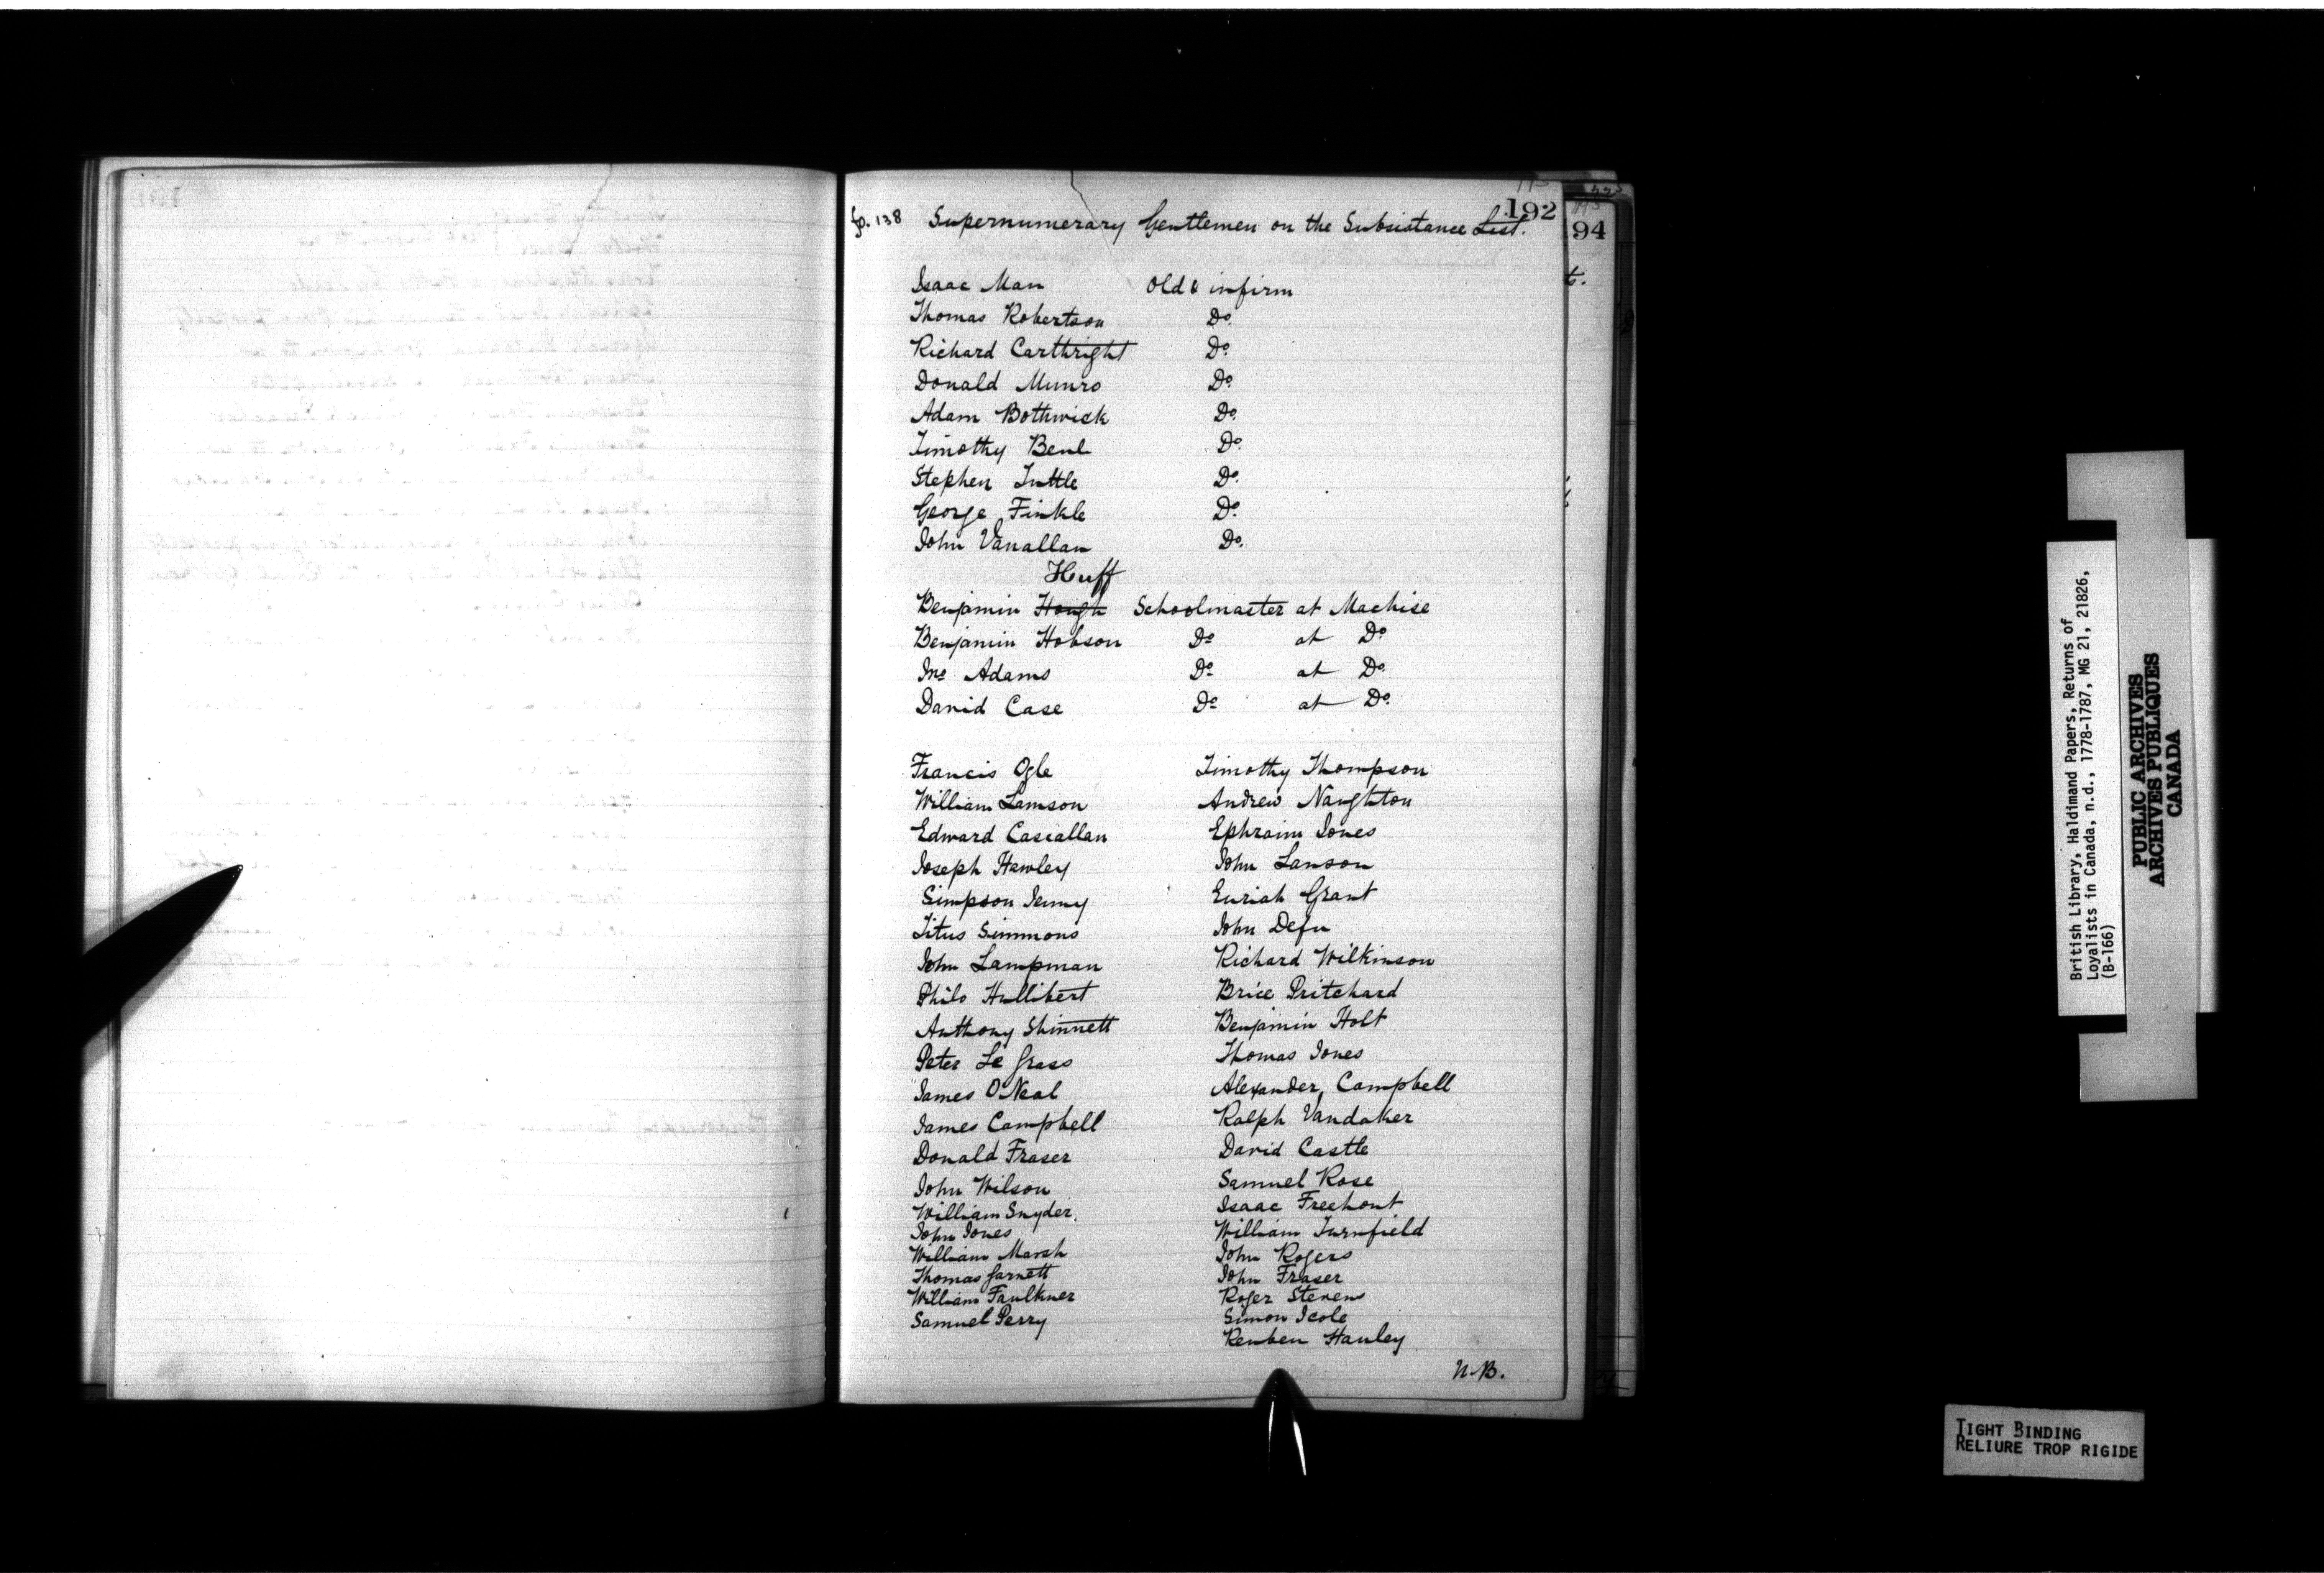 192
fp. 138 Supernumerary Gentlemen on the Subsistance List.
94
Isaac Man Old & infirm
Thomas Robertson Do.
Richard Carthright Do.
Donald Munro Do.
Adam Bothwick Do.
Timothy Benl Do.
Stephen Tuttle Do.
George Finkle Do.
John Vanallan Do.
Huff
Benjamin Hough Schoolmaster at Machise
Benjamin Hobson Do at Do.
Jno Adams Do at Do.
David Case Do at Do.
Francis Ogle Timothy Thompson
William Lamson Andrew Naughton
Edward Cascallan Ephraim Jones
Joseph Hawley John Lawson
Simpson Jenny Euriah Grant
Titus Simmons John Defu
John Lampman Richard Wilkinson
Philo Hullibert Brice Pritchard
Anthony Shinnett Benjamin Holt
Peter Le Grass Thomas Jones
James O'Neal Alexander Campbell
James Campbell Ralph Vandaker
Donald Fraser David Castle
John Wilson Samuel Rose
William Snyder. Isaac Freehout
John Jones William Turnfield
William Marsh John Rogers
Thomas Garnett John Fraser
William Faulkner Roger Stevens
Samuel Perry Simon Icole
Reuben Hauley
N.B.
British Library, Haldimand Papers, Returns of
Loyalists in Canada, n.d., 1778-1787, MG 21, 21826,
(B-166)
PUBLIC ARCHIVES
ARCHIVES PUBLIQUES
CANADA
TIGHT BINDING
RELIURE TROP RIGIDE